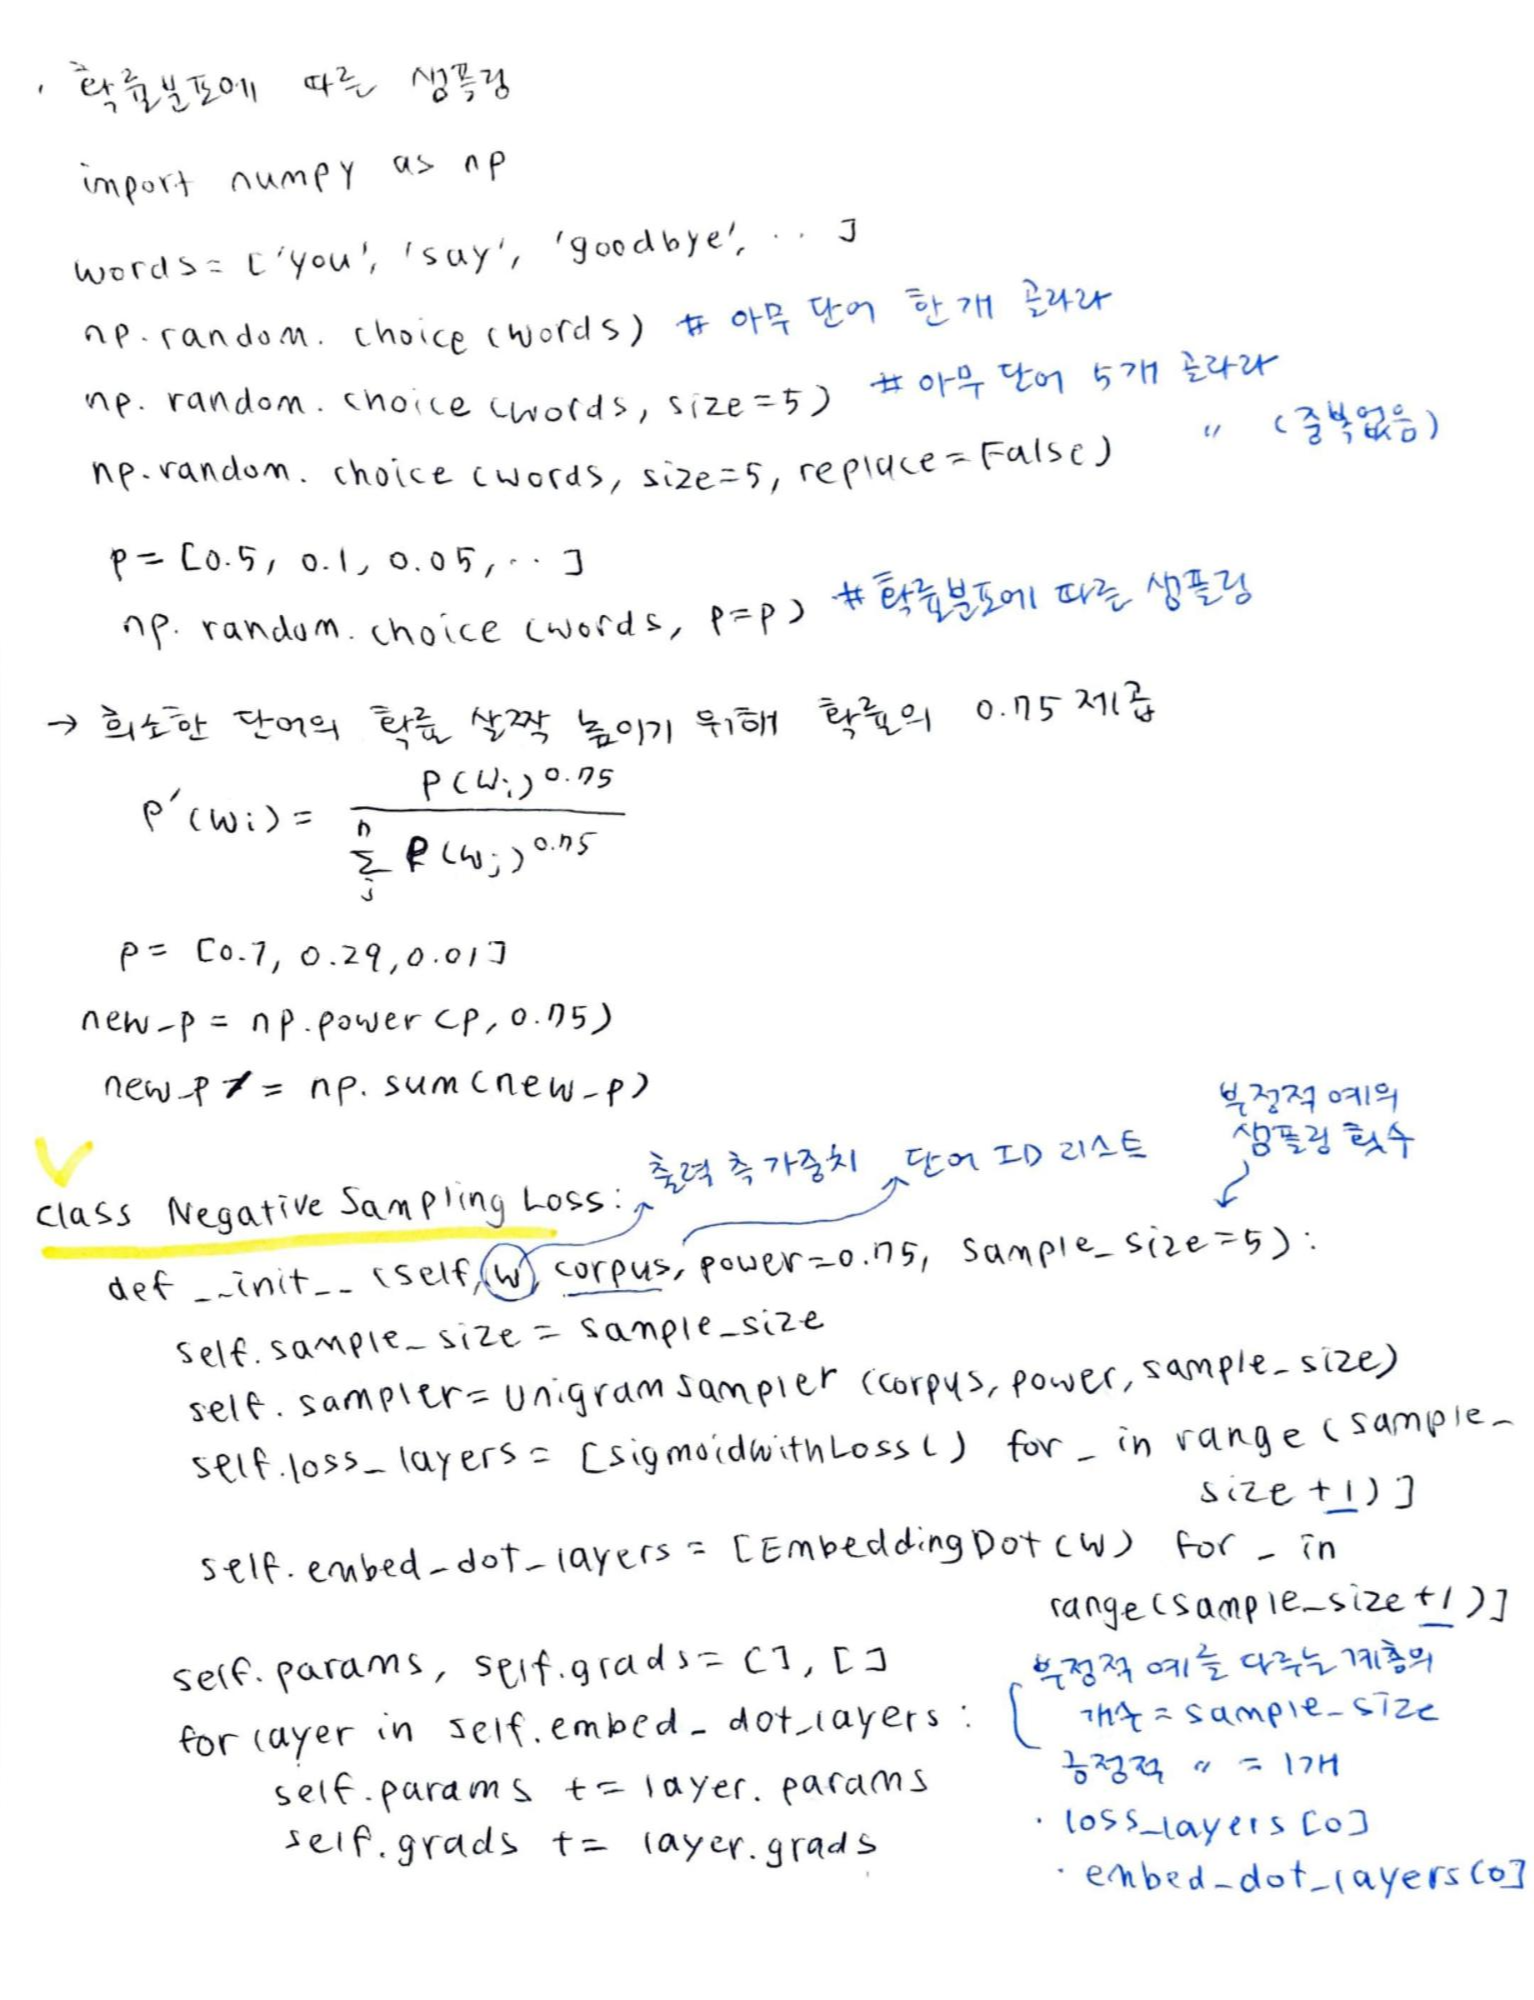 · 확률분포에 따른 샘플링
import numpy as np
words = ['you', 'say', 'goodbye', ‥ ]
np.random.choice(words) # 아무 단어 한 개 골라라
np.random.choice(words, size=5) # 아무 단어 5개 골라라
np.random.choice(words, size=5, replace=False) 〃 (중복없음)
p = [0.5, 0.1, 0.05, ‥ ]
np.random.choice(words, p=p) # 확률분포에 따른 샘플링
→ 희소한 단어의 확률 살짝 높이기 위해 확률의 0.75 제곱
P'(wi) = P(wi)^0.75 / Σ_j^n P(wj)^0.75
p = [0.7, 0.29, 0.01]
new_p = np.power(p, 0.75)
new_p /= np.sum(new_p)
부정적 예의
샘플링 횟수
출력 측 가중치
단어 ID 리스트
class NegativeSamplingLoss:
def __init__(self, W, corpus, power=0.75, sample_size=5):
self.sample_size = sample_size
self.sampler = UnigramSampler(corpus, power, sample_size)
self.loss_layers = [SigmoidWithLoss() for _ in range(sample_
size+1)]
self.embed_dot_layers = [EmbeddingDot(W) for _ in
range(sample_size+1)]
self.params, self.grads = [], []
for layer in self.embed_dot_layers:
self.params += layer.params
self.grads += layer.grads
부정적 예를 다루는 계층의
개수 = sample_size
긍정적 〃 = 1개
· loss_layers[0]
· embed_dot_layers[0]